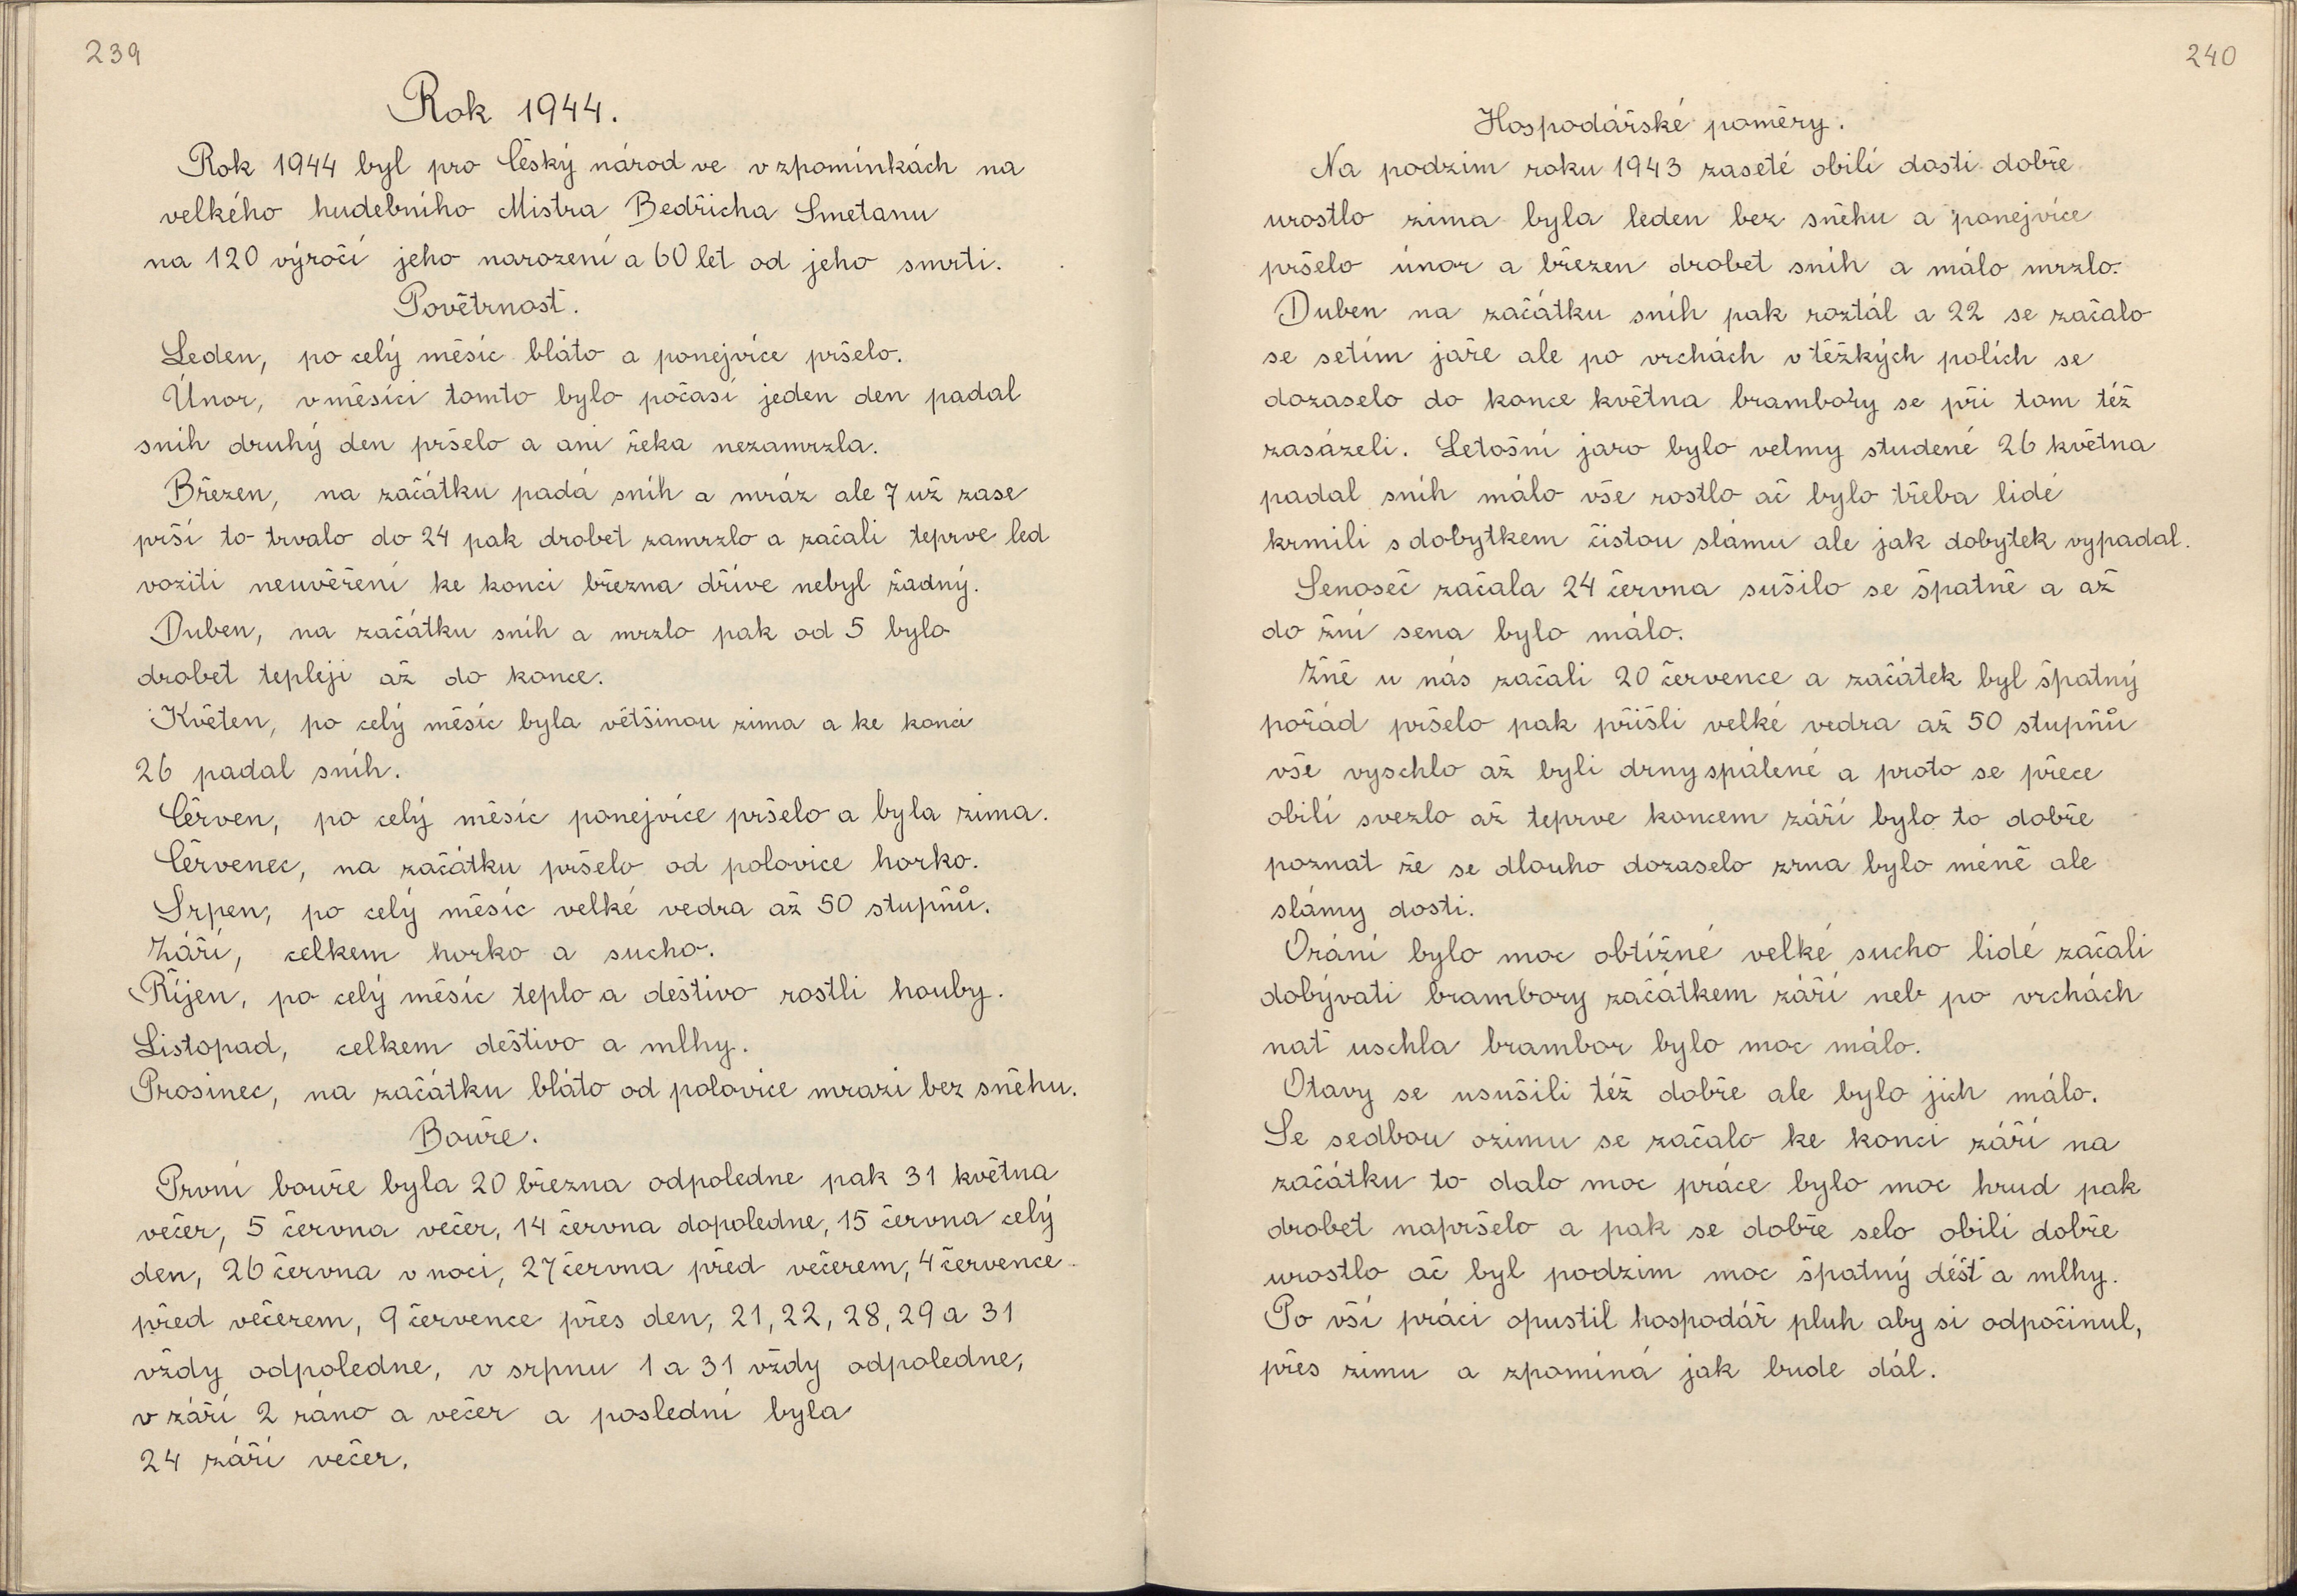 239
Rok 1944.
Rok 1944 byl pro Český národ ve vzpomínkách na
velkého hudebního Mistra Bedřicha Smetanu
na 120 výročí jeho narození a 60 let od jeho smrti.
Povětrnost.
Leden, po celý měsíc bláto a ponejvíce pršelo.
Únor, v měsíci tomto bylo počasí jeden den padal
sníh druhý den pršelo a ani řeka nezamrzla.
Březen, na začátku padá sníh a mráz ale 7 už zase
prší to trvalo do 24 pak drobet zamrzlo a začali teprve led
voziti neuvěření ke konci března dříve nebyl žádný.
Duben, na začátku sníh a mrzlo pak od 5 bylo
drobet tepleji až do konce.
Květen, po celý měsíc byla většinou zima a ke konci
26 padal sníh.
Červen, po celý měsíc ponejvíce pršelo a byla zima.
Červenec, na začátku pršelo od polovice horko.
Srpen, po celý měsíc velké vedra až 50 stupňů.
Září, celkem horko a sucho.
Říjen, po celý měsíc teplo a deštivo rostli houby.
Listopad, celkem deštivo a mlhy.
Prosinec, na začátku bláto od polovice mrazi bez sněhu.
Bouře.
První bouře byla 20 března odpoledne pak 31 května
večer, 5 června večer, 14 června dopoledne, 15 června celý
den, 26 června v noci, 27 června před večerem, 4 července
před večerem, 9 července přes den, 21, 22, 28, 29 a 31
vždy odpoledne, v srpnu 1 a 31 vždy odpoledne,
v září 2 ráno a večer a poslední byla
24 září večer.
240
Hospodářské poměry.
Na podzim roku 1943 zaseté obilí dosti dobře
urostlo zima byla leden bez sněhu a ponejvíce
pršelo únor a březen drobet sníh a málo mrzlo.
Duben na začátku sníh pak roztál a 22 se začalo
se setím jaře ale po vrchách v těžkých polích se
dozaselo do konce května brambory se při tom též
zasázeli. Letošní jaro bylo velmy studené 26 května
padal sníh málo vše rostlo ač bylo třeba lidé
krmili s dobytkem čistou slámu ale jak dobytek vypadal.
Senoseč začala 24 června sušilo se špatně a až
do žní sena bylo málo.
Žně u nás začali 20 července a začátek byl špatný
pořád pršelo pak přišli velké vedra až 50 stupňů
vše vyschlo až byli drny spálené a proto se přece
obilí svezlo až teprve koncem září bylo to dobře
poznat že se dlouho dozaselo zrna bylo méně ale
slámy dosti.
Orání bylo moc obtížné velké sucho lidé začali
dobývati brambory začátkem září neb po vrchách
nať uschla brambor bylo moc málo.
Otavy se usušili též dobře ale bylo jich málo.
Se sedbou ozimu se začalo ke konci září na
začátku to dalo moc práce bylo moc hrud pak
drobet napršelo a pak se dobře selo obilí dobře
urostlo ač byl podzim moc špatný déšť a mlhy.
Po vší práci opustil hospodář pluh aby si odpočinul,
přes zimu a zpomíná jak bude dál.